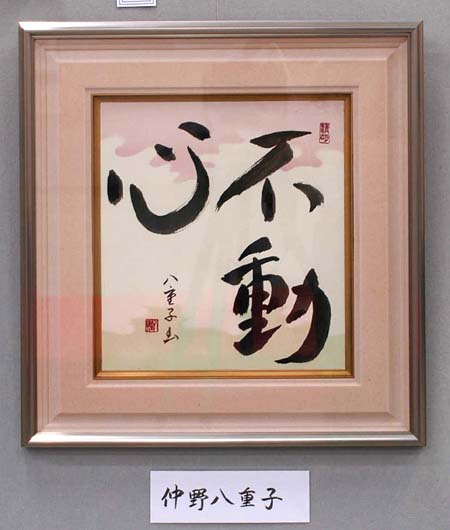 不動
心
八重子書
仲野八重子